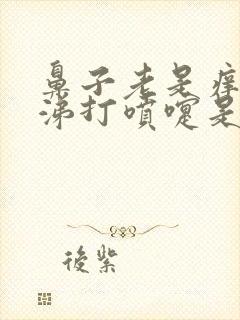 鼻子老是痒
涕打喷嚏是
後紫